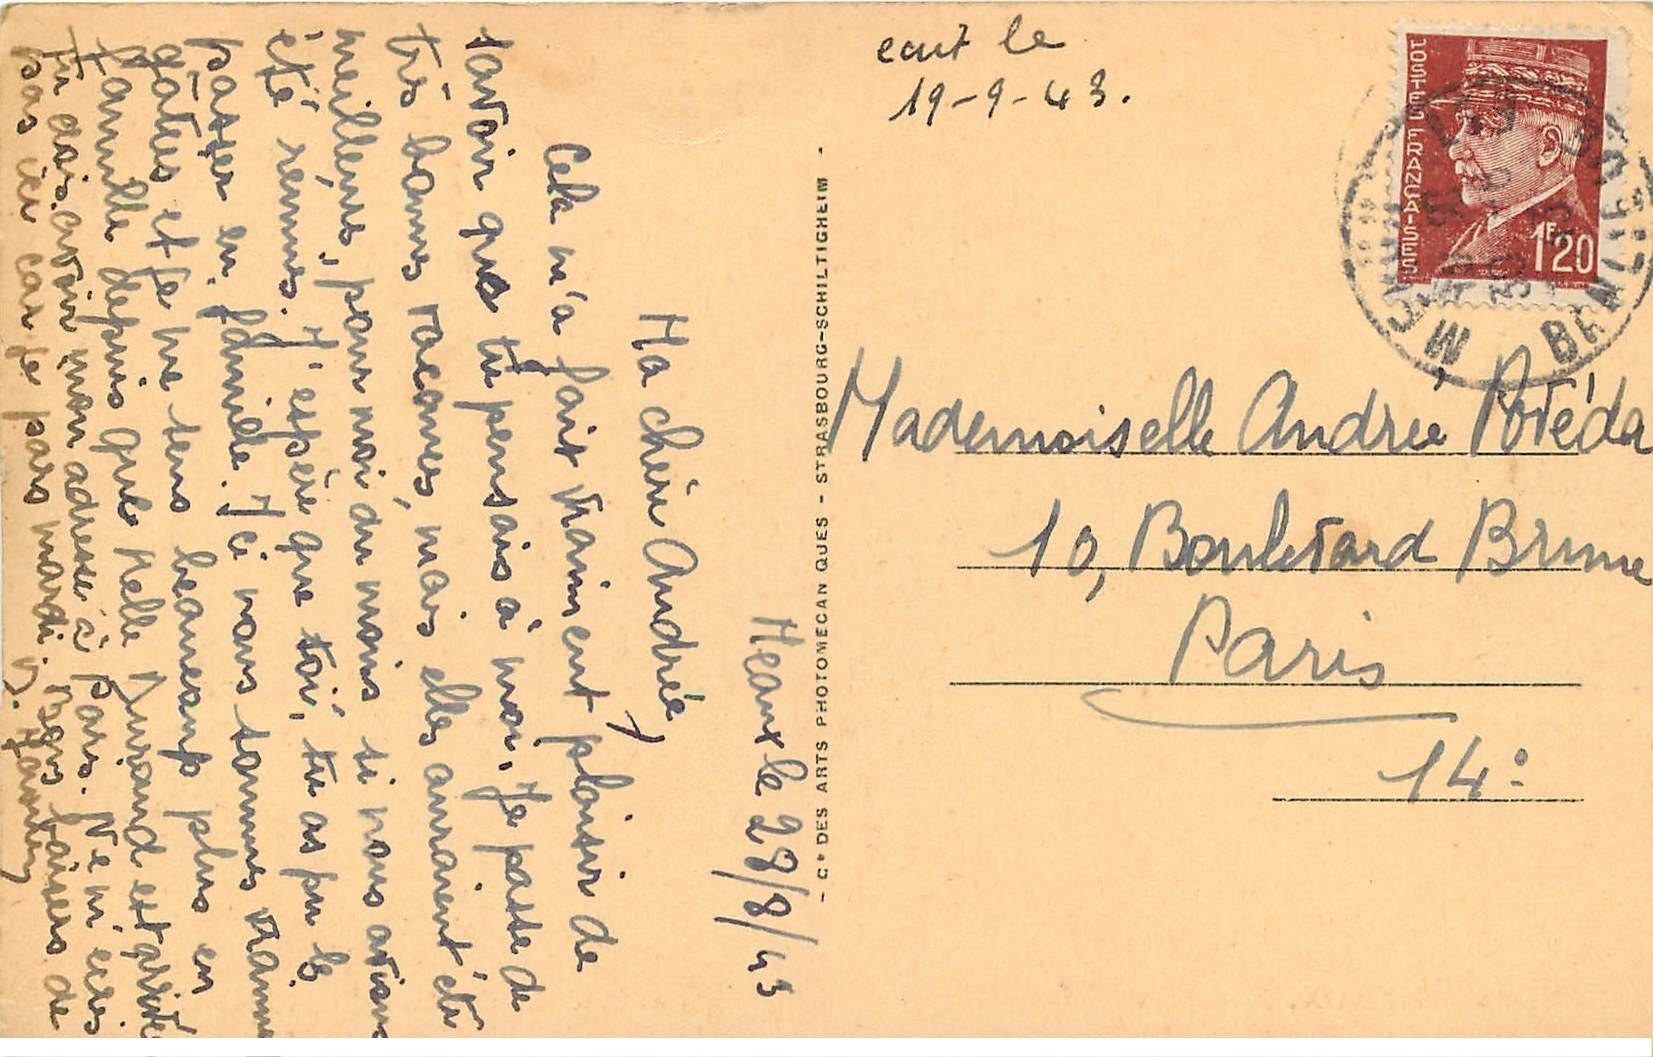 Meaux le 28/8/43
Ma chère Andrée,
Cela m'a fait vraiment plaisir de
savoir que tu pensais à moi. Je passe de
très bonnes vacances, mais elles auraient été
meilleures, pour moi du moins si nous avions
été réunies. J'espère que toi, tu as pu le
passer en famille. Ici nous sommes vraiment
gâtées et je me sens beaucoup plus en
famille depuis que Melle est arrivée
Tu dois avoir mon adresse à Paris. Ne m'écris
pas ici car je pars mardi. Bons baisers de
- Cie DES ARTS PHOTOMECANIQUES - STRASBOURG-SCHILTIGHEIM -
écrit le
19-9-43.
POSTES FRANÇAISES
1F20
Mademoiselle Andrée Povéda
10, Boulevard Brune
Paris
14e